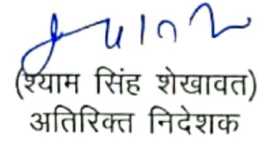 (श्याम सिंह शेखावत)
अतिरिक्त निदेशक